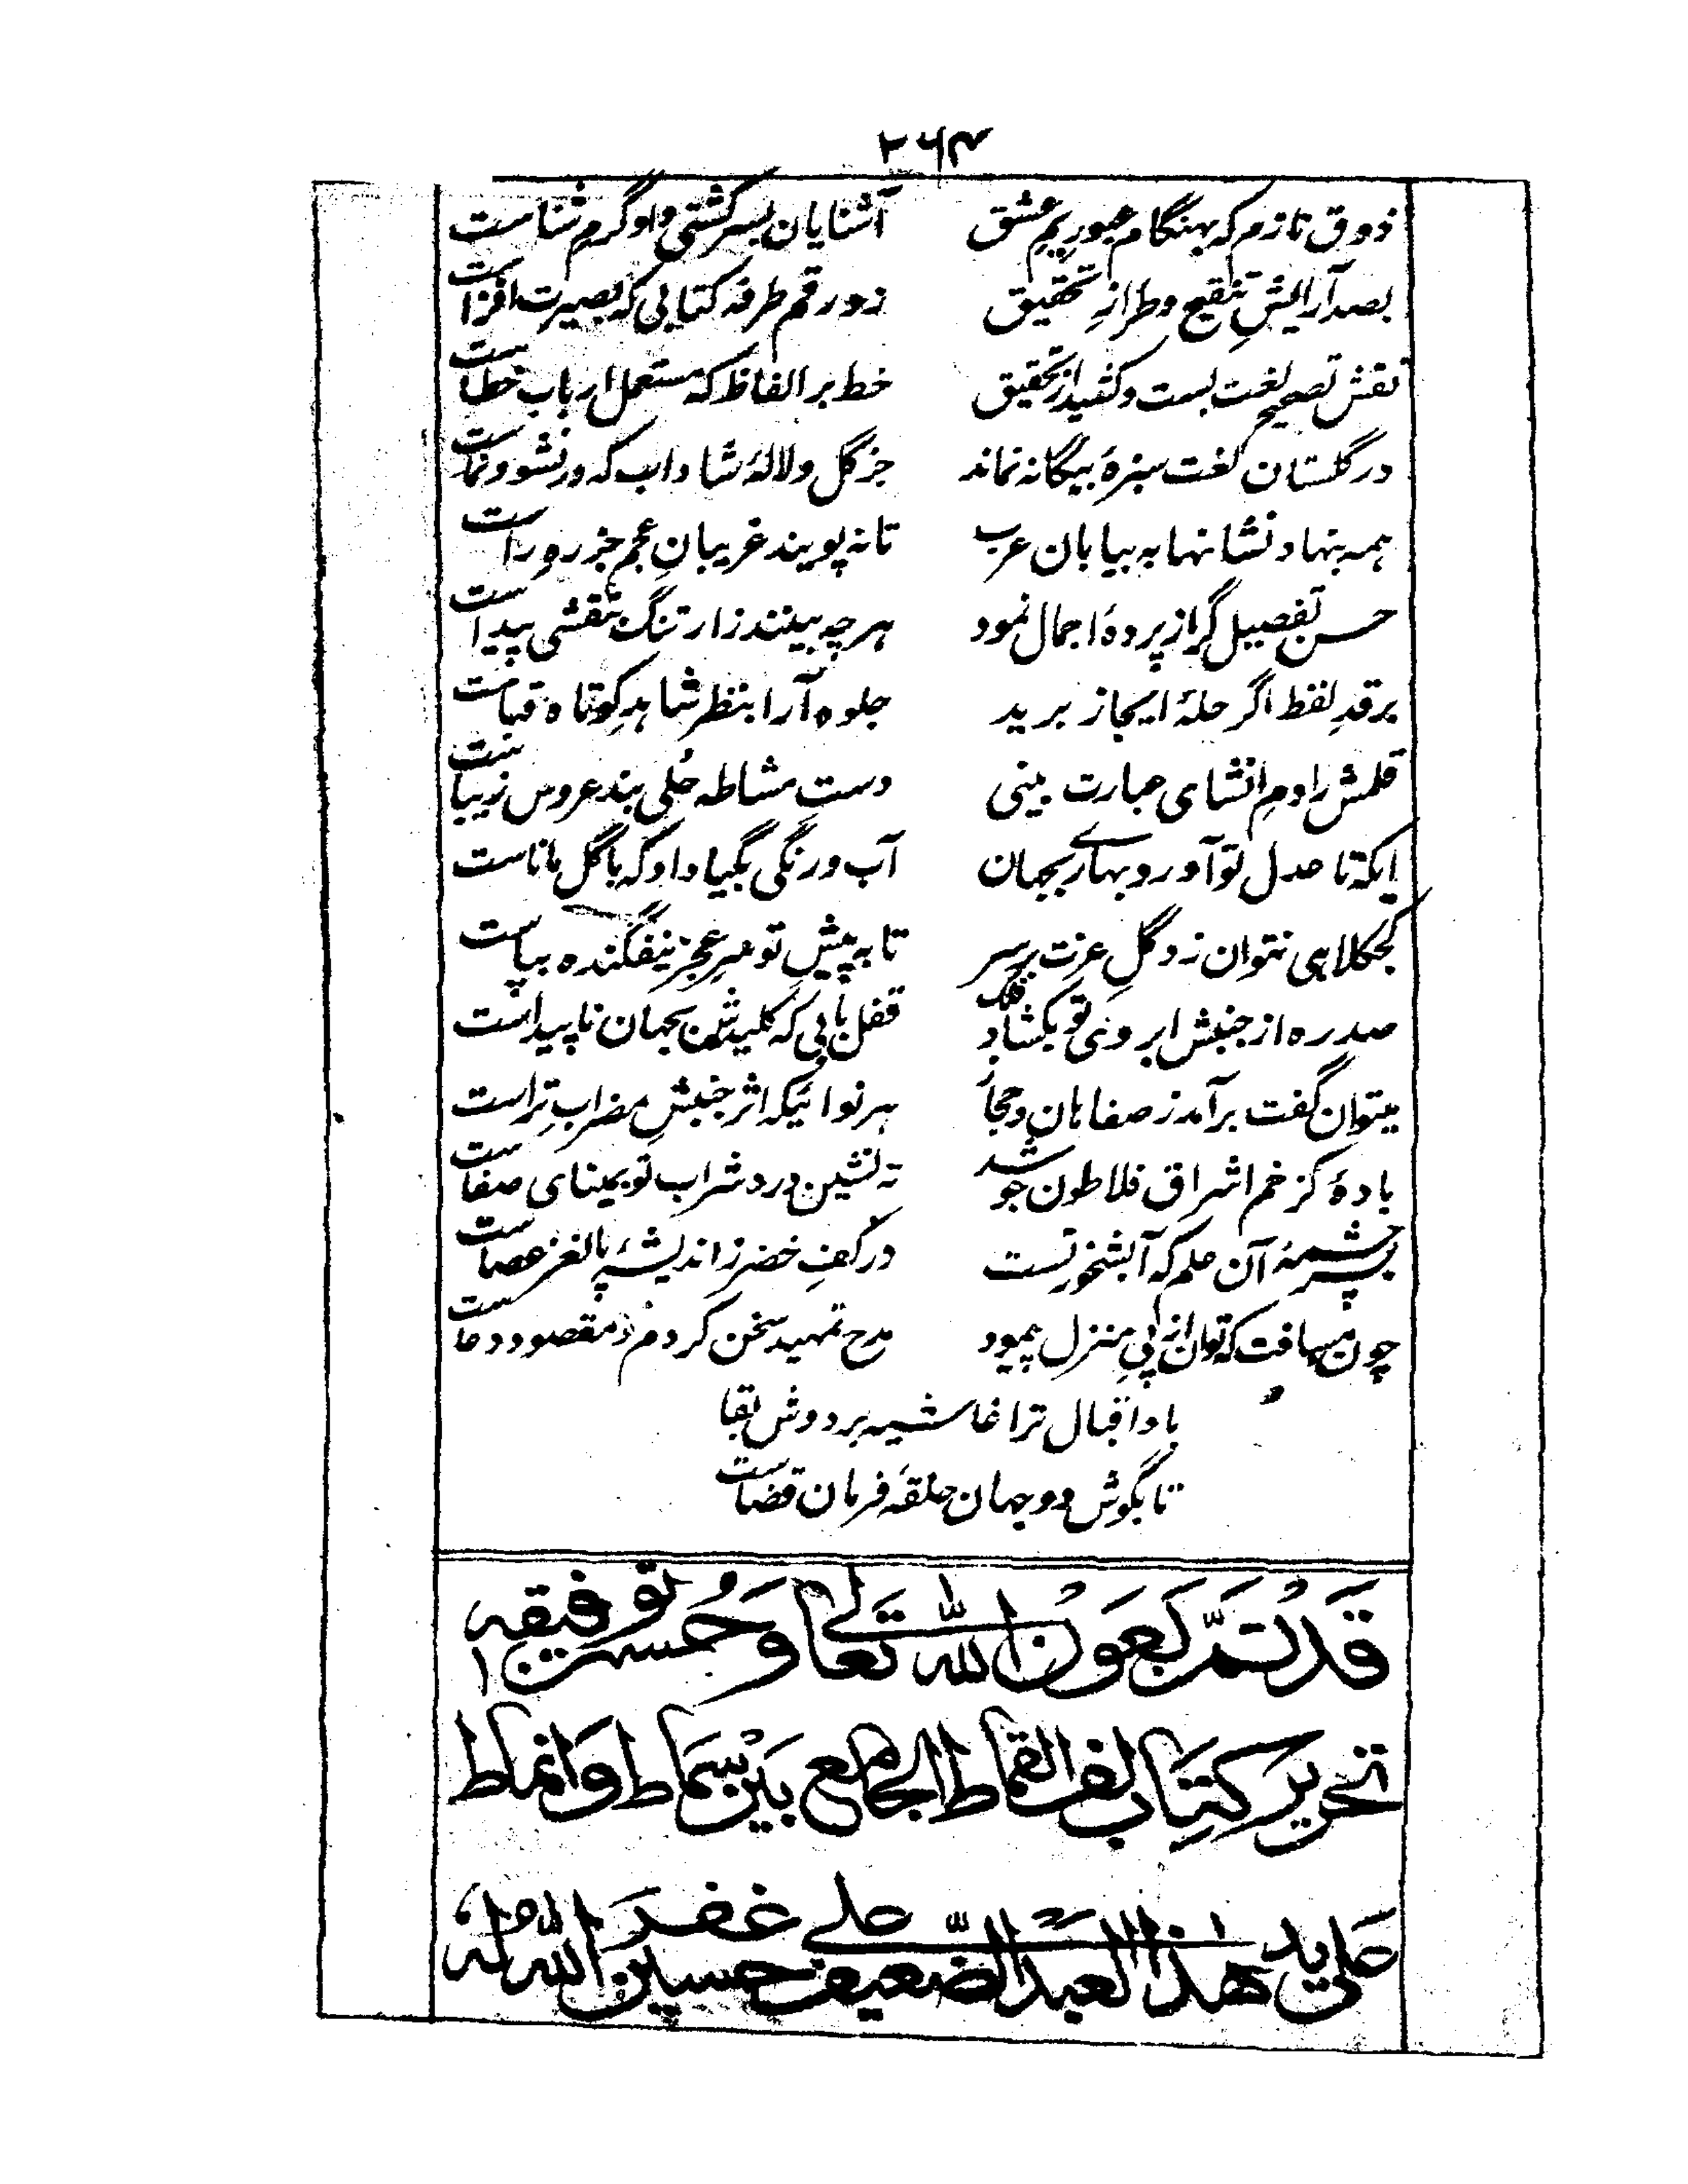 ۲۶۴
ذوق نازم که بهنگام عبور یم عشق آشنایان بسر کشتی و او گرم شناست
بصد آرایش تنقیح و طراز تحقیق زد رقم طرفه کتابی که بصیرت افزاست
نقش تصحیح لغت بست و کشید از تحقیق خط بر الفاظ که مستعمل ارباب خطاست
در گلستان لغت سبزهٔ بیگانه نماند جز گل و لالهٔ شاداب که در نشو و نماست
همه بنهاد نشانها به بیابان عرب تا نه پویند غریبان عجم جز ره راست
حسن تفصیل گر از پردهٔ اجمال نمود هر چه بینند ز ارتنگ نقشی پیداست
بر قد لفظ اگر حلهٔ ایجاز برید جلوه آرا بنظر شاهد کوتاه قباست
قلمش را دم انشای عبارت بینی دست مشاطه حلی بند عروس زیباست
ایکه تا عدل تو آورد بهاری بجهان آب و رنگی بگیا داد که با گل ماناست
کجکلاهی نتوان زد گل عزت بر سر تا به پیش تو سر عجز نیفگنده بپاست
صد ره از جنبش ابروی تو بکشاد فلک قفل بابی که کلیدش بجهان ناپیداست
میتوان گفت برآمد ز صفاهان و حجاز هر نوائیکه اثر جنبش مضراب تراست
بادهٔ کز خم اشراق فلاطون جوشد ته نشین درد شراب تو بمینای صفاست
بر سر چشمهٔ آن علم که آبشخور تست در کف خضر ز اندیشهٔ پالغز عصاست
چون مسافت که توان از پی منزل پیمود مدح تمهید سخن کردم و مقصود دعاست
باد اقبال ترا غاشیه بر دوش بقا
تا بگوش دو جهان حلقهٔ فرمان قضاست
قَد تَمَّ بعَونِ الله تَعالی وَحُسنِ توفیقه
تحریر کتاب لف القماط الجامع بین سماط وانماط
علی ید هذا العبد الضعیف علی حسین غفر الله له